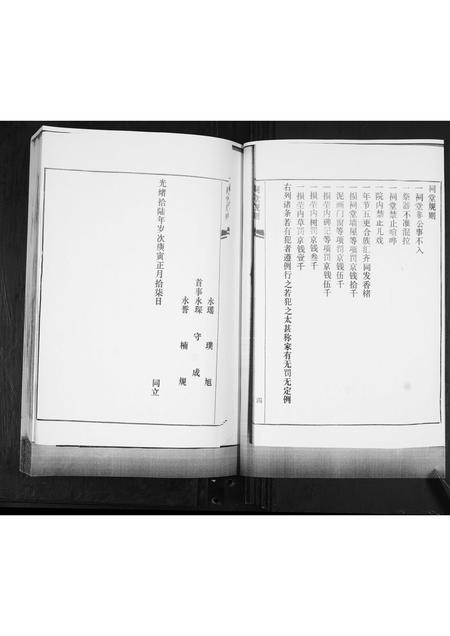 祠堂规则
一祠堂非公事不入
一祭器不准混拉
一祠堂禁止喧哗
一院内禁止儿戏
一年节五更合族汇齐同发香楮
一损祠堂墙屋等项罚京钱拾千
泥画门窗等项罚京钱伍千
一损茔内碑记等项罚京钱伍千
一损茔内树罚京钱叁千
一损茔内草罚京钱壹千
右列诸条若有犯者遵例行之若犯之太甚称家有无罚无定例
祠堂规则
四
永瑶 璞 旭
首事永琛 守 成
永誉 楠 规
同立
光绪拾陆年岁次庚寅正月拾柒日